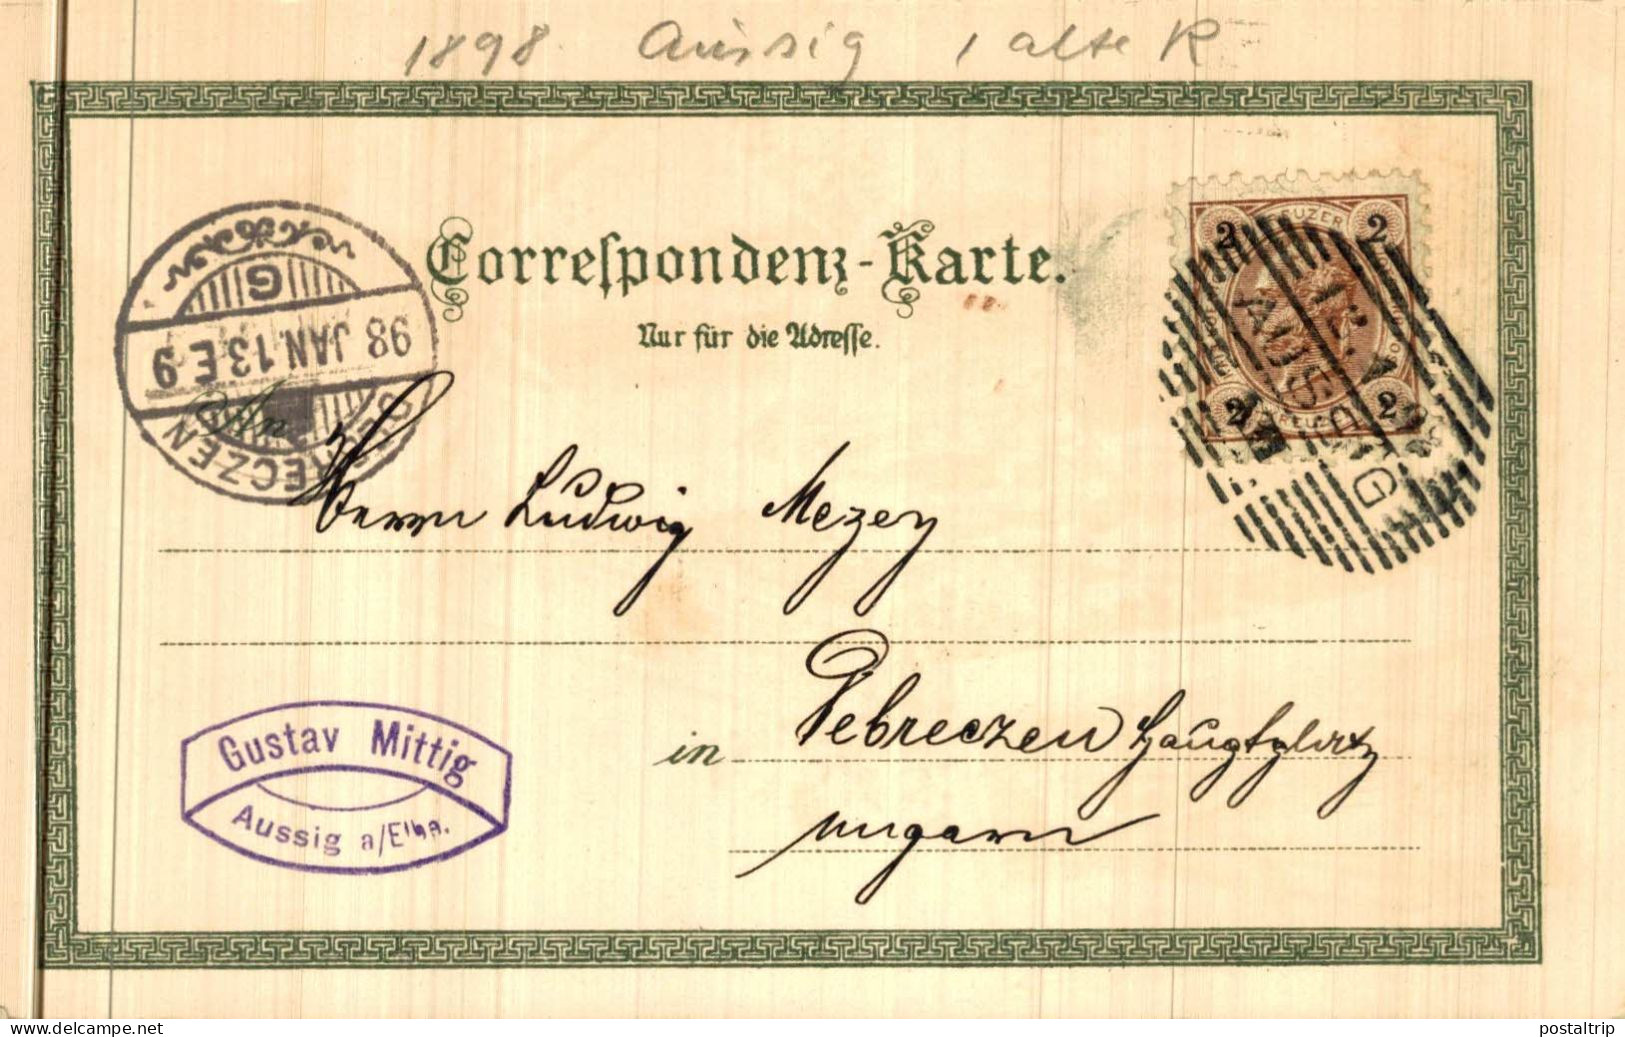 1898 Aussig 1 alte K
Correspondenz-Karte.
Nur für die Adresse.
2 KREUZER 2
2 2
12.1.98
AUSSIG
G
98 JAN. 13 E 9
DEBRECZEN
An
Herrn Ludwig Mezey
in Debreczen Hauptplatz
Ungarn
Gustav Mittig
Aussig a/Elbe.
www.delcampe.net
postaltrip